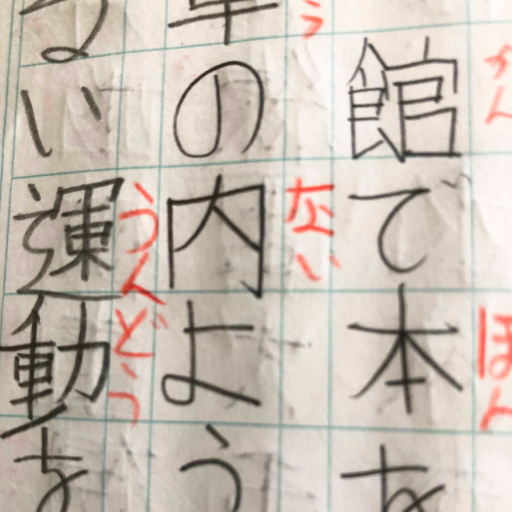 かん ほん
館で本を
う ない
の内よう
うんどう
い運動を